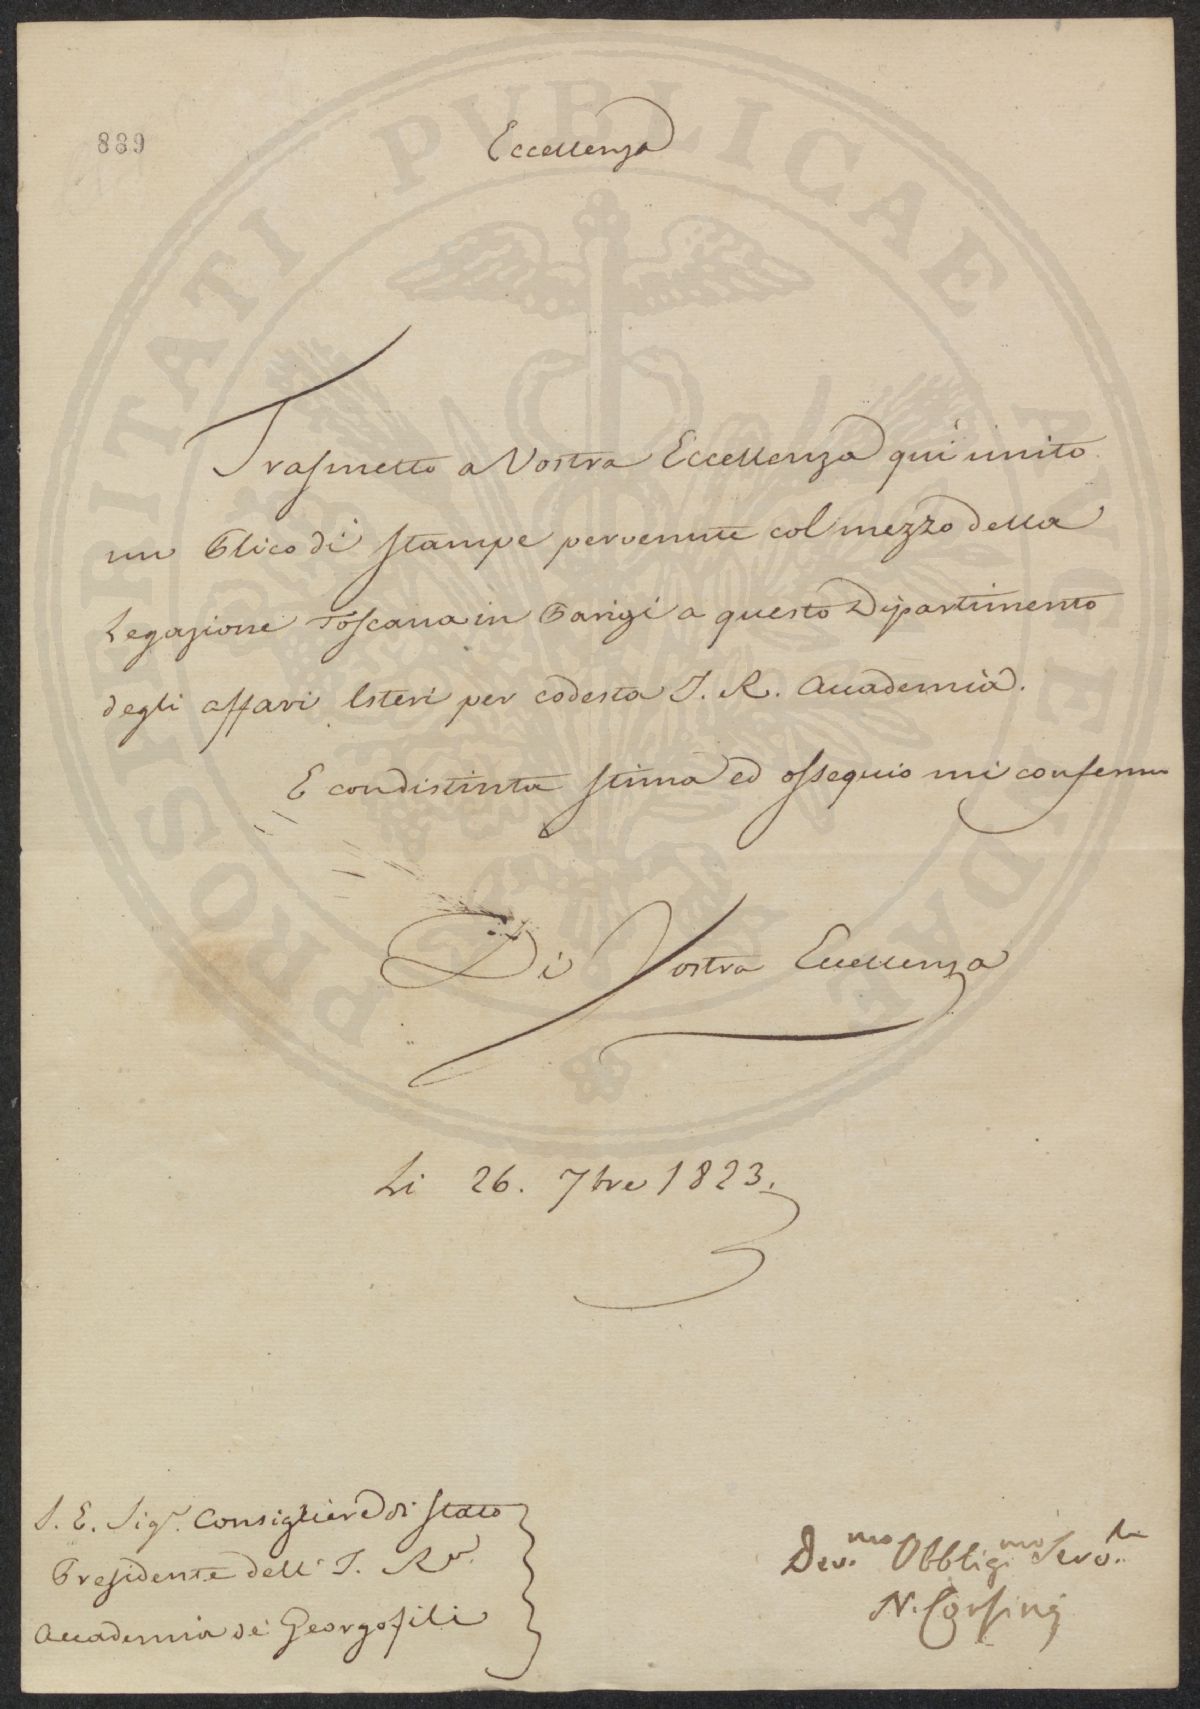 889
Eccellenza
Trasmetto a Vostra Eccellenza quì unito
un Plico di Stampe pervenute col mezzo della
Legazione Toscana in Parigi a questo Dipartimento
degli affari Esteri per codesta I. R. Accademia.
E con distinta stima ed ossequio mi confermo
Di Vostra Eccellenza
Li 26. 7bre 1823.
S. E. Sigr. Consigliere di Stato
Presidente dell' I. Re.
Accademia de' Georgofili
Dev.mo Obblig.mo Servo.
N. Corsini
PROSPERITATI PUBLICAE AUGENDAE